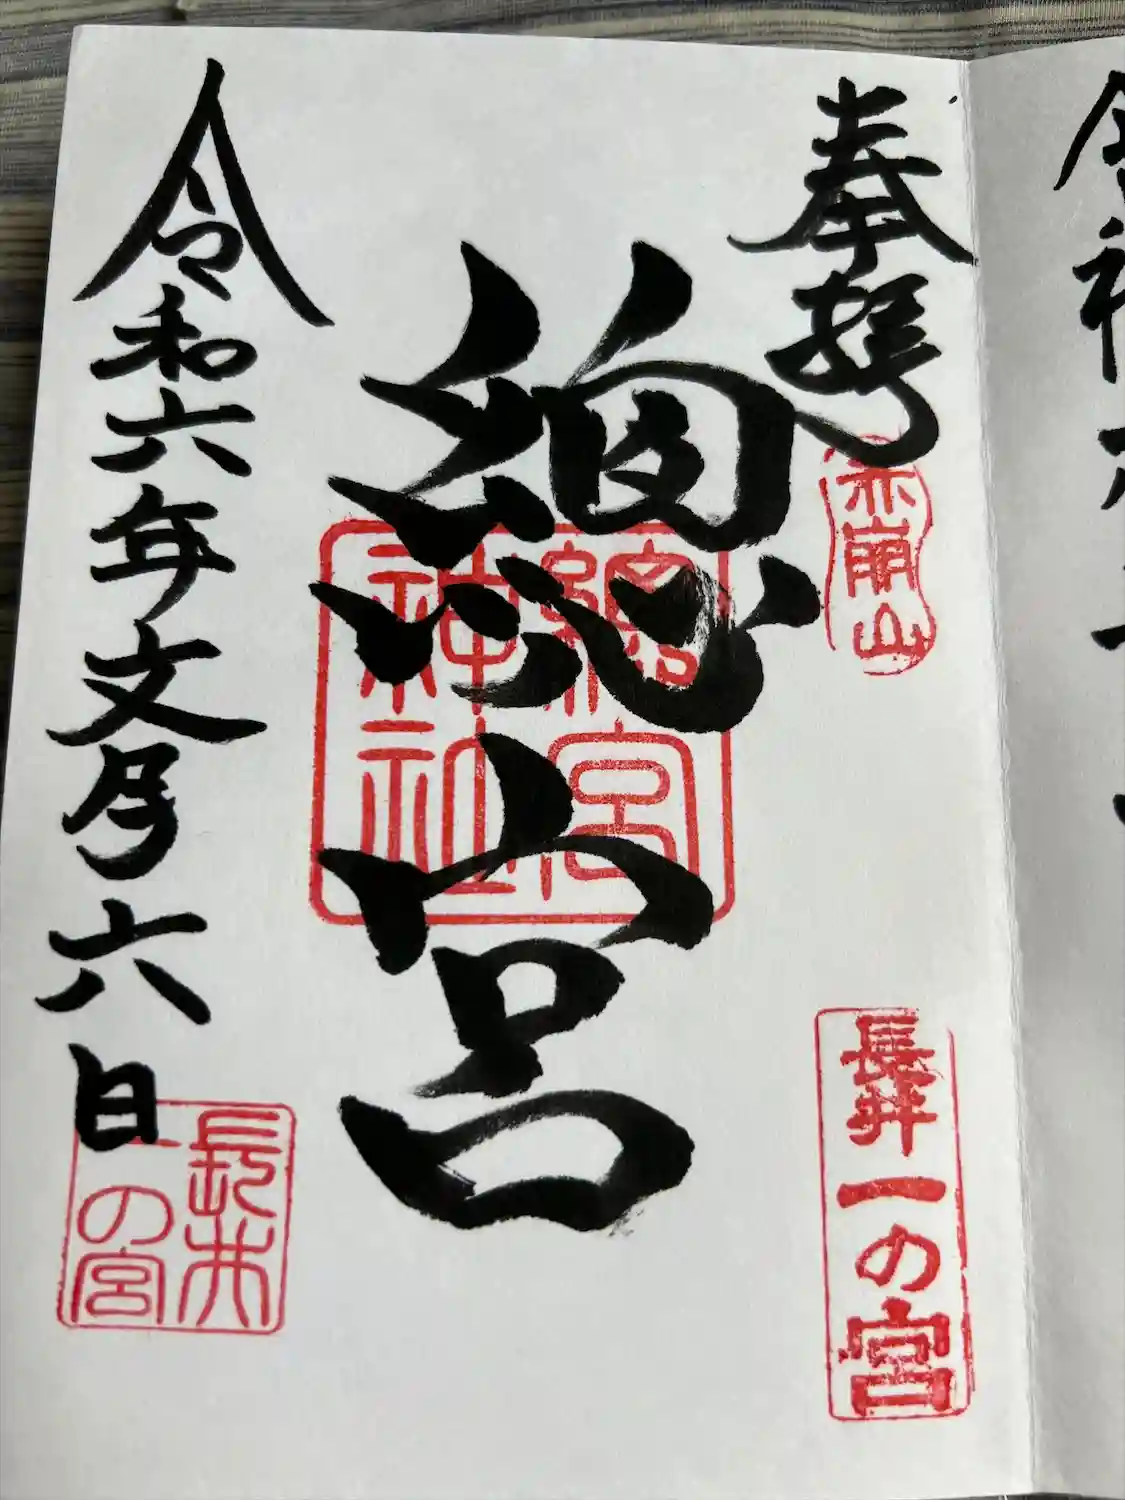 奉拝
赤崩山
長井一の宮
總宮
總宮
神社
令和六年文月六日
長井
一の宮